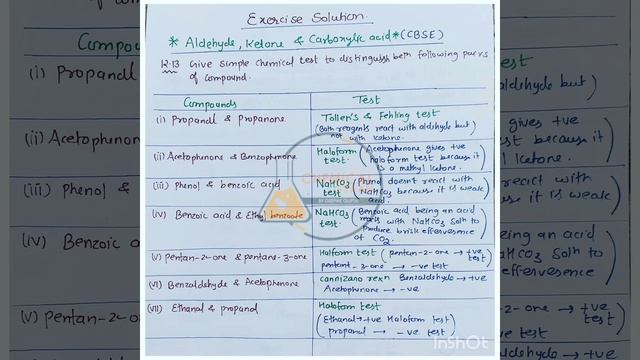 Exercise Solution
* Aldehyde, Ketone & Carboxylic acid * (CBSE)
12.13 Give simple chemical test to distinguish beth following pairs
of compound.
Compounds Test
(i) Propanal & Propanone Tollen's & Fehling test
(Both reagents react with aldehyde but)
not with ketone
(ii) Acetophenone & Benzophenone Haloform test. (Acetophenone gives +ve
haloform test because it
is a methyl ketone.)
(iii) Phenol & benzoic acid NaHCO3 test (Phenol doesn't react with
NaHCO3 because it is weak
acid.
(iv) Benzoic acid & Ethyl benzoate NaHCO3 test. (Benzoic acid being an acid
reacts with NaHCO3 Soln to
produce brisk effervesence
of CO2.
(v) pentan-2-one & pentane-3-one Halform test (pentan-2-one → +ve test)
pentant-3-one → -ve test
(VI) Benzaldehyde & Acetophenone Cannizano rexn Benzaldehyde → +ve
Acetophenone → -ve
(VII) Ethanal & propanal Haloform test
(Ethanal → +ve Haloform test)
propanal → -ve test)
Compound
(i) Propanal
(ii) Acetophenon
(iii) Phenol &
(iv) Benzoic
(v) pentan-2-or
est
dehyde but)
gives +ve
because it
l ketone.
react with
it is weak
being an
HCO3 Soln to
effervesence
one → +ve
test)
ve test
dehyde → +ve
InShOt